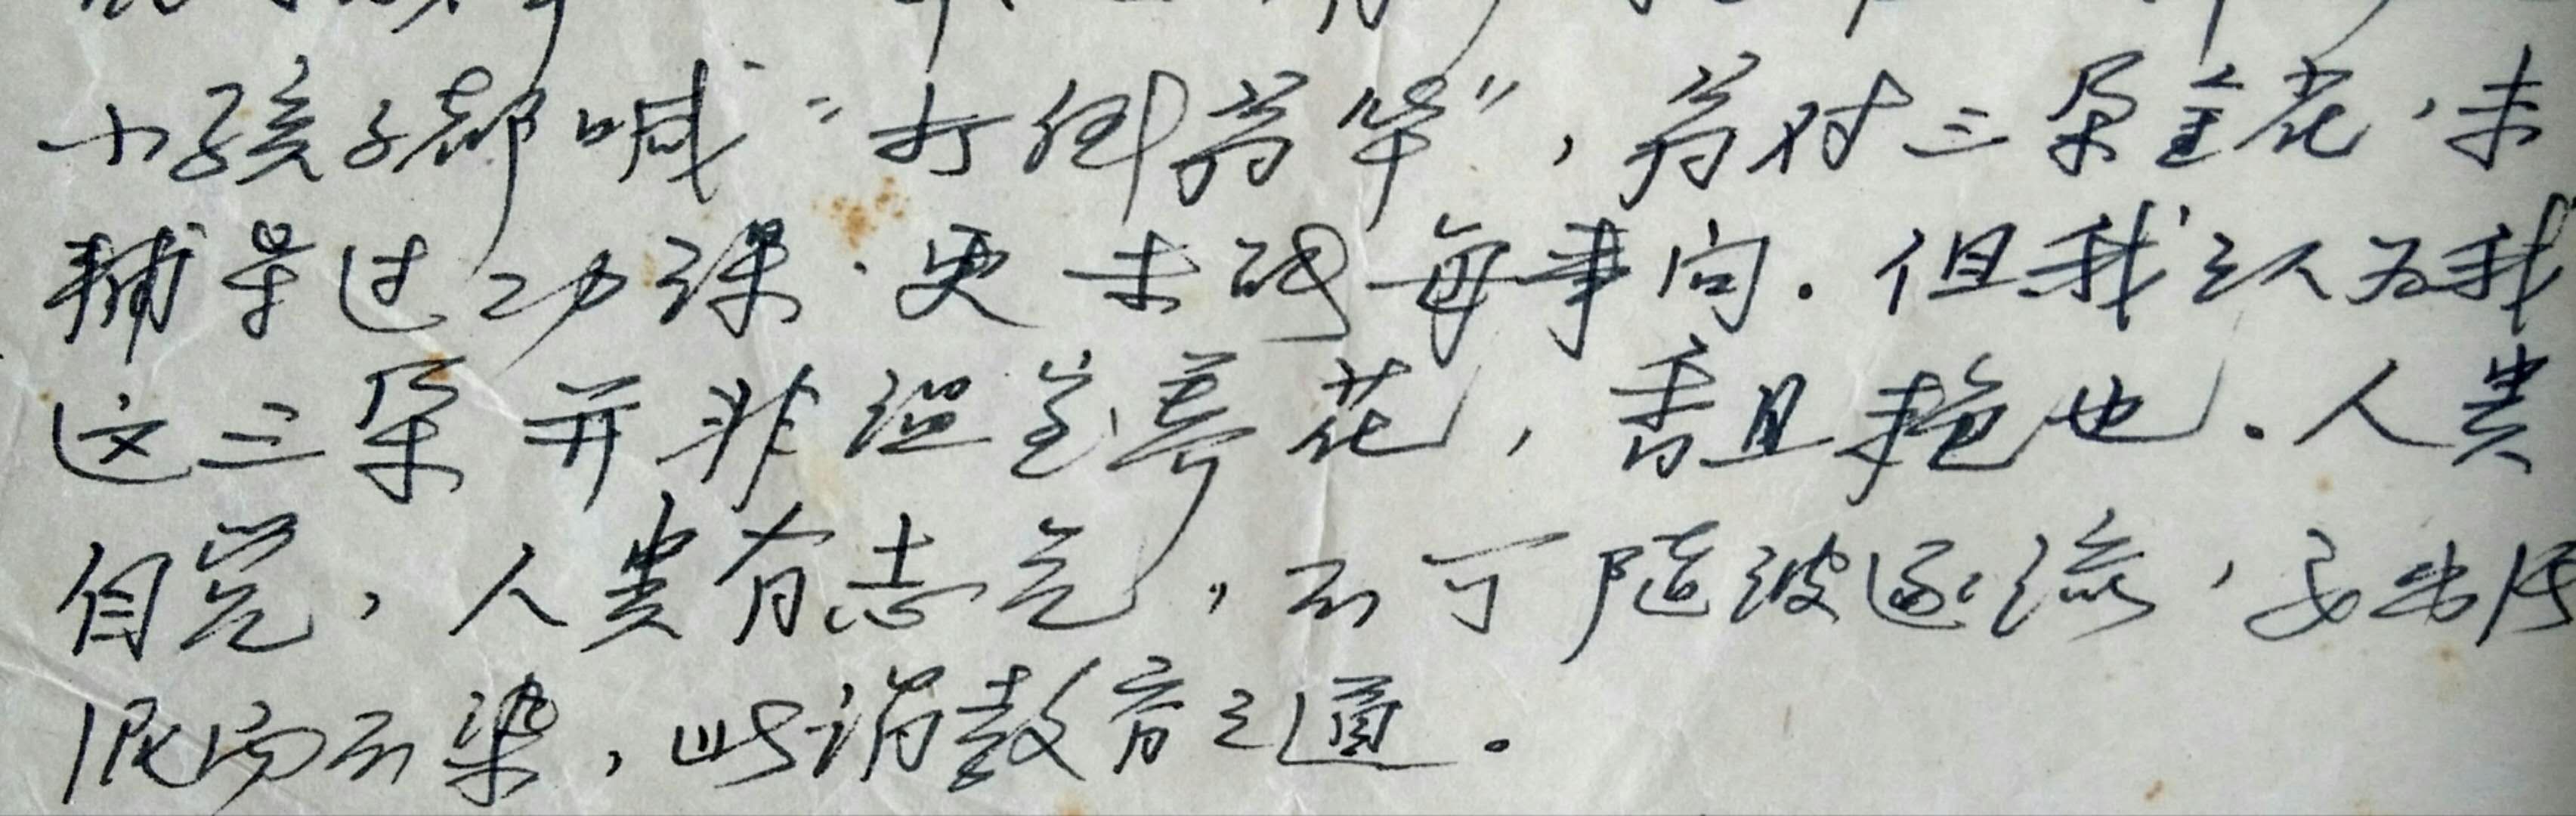 小孩子都喊“打倒翁华”，翁对三朵金花，未
辅导过功课．更未砖每事问．但我认为我
这三朵并非温室养花，香且艳也．人贵
自觉，人贵有志气，不可随波逐流，要出淤
泥而不染，此谓教育之道。